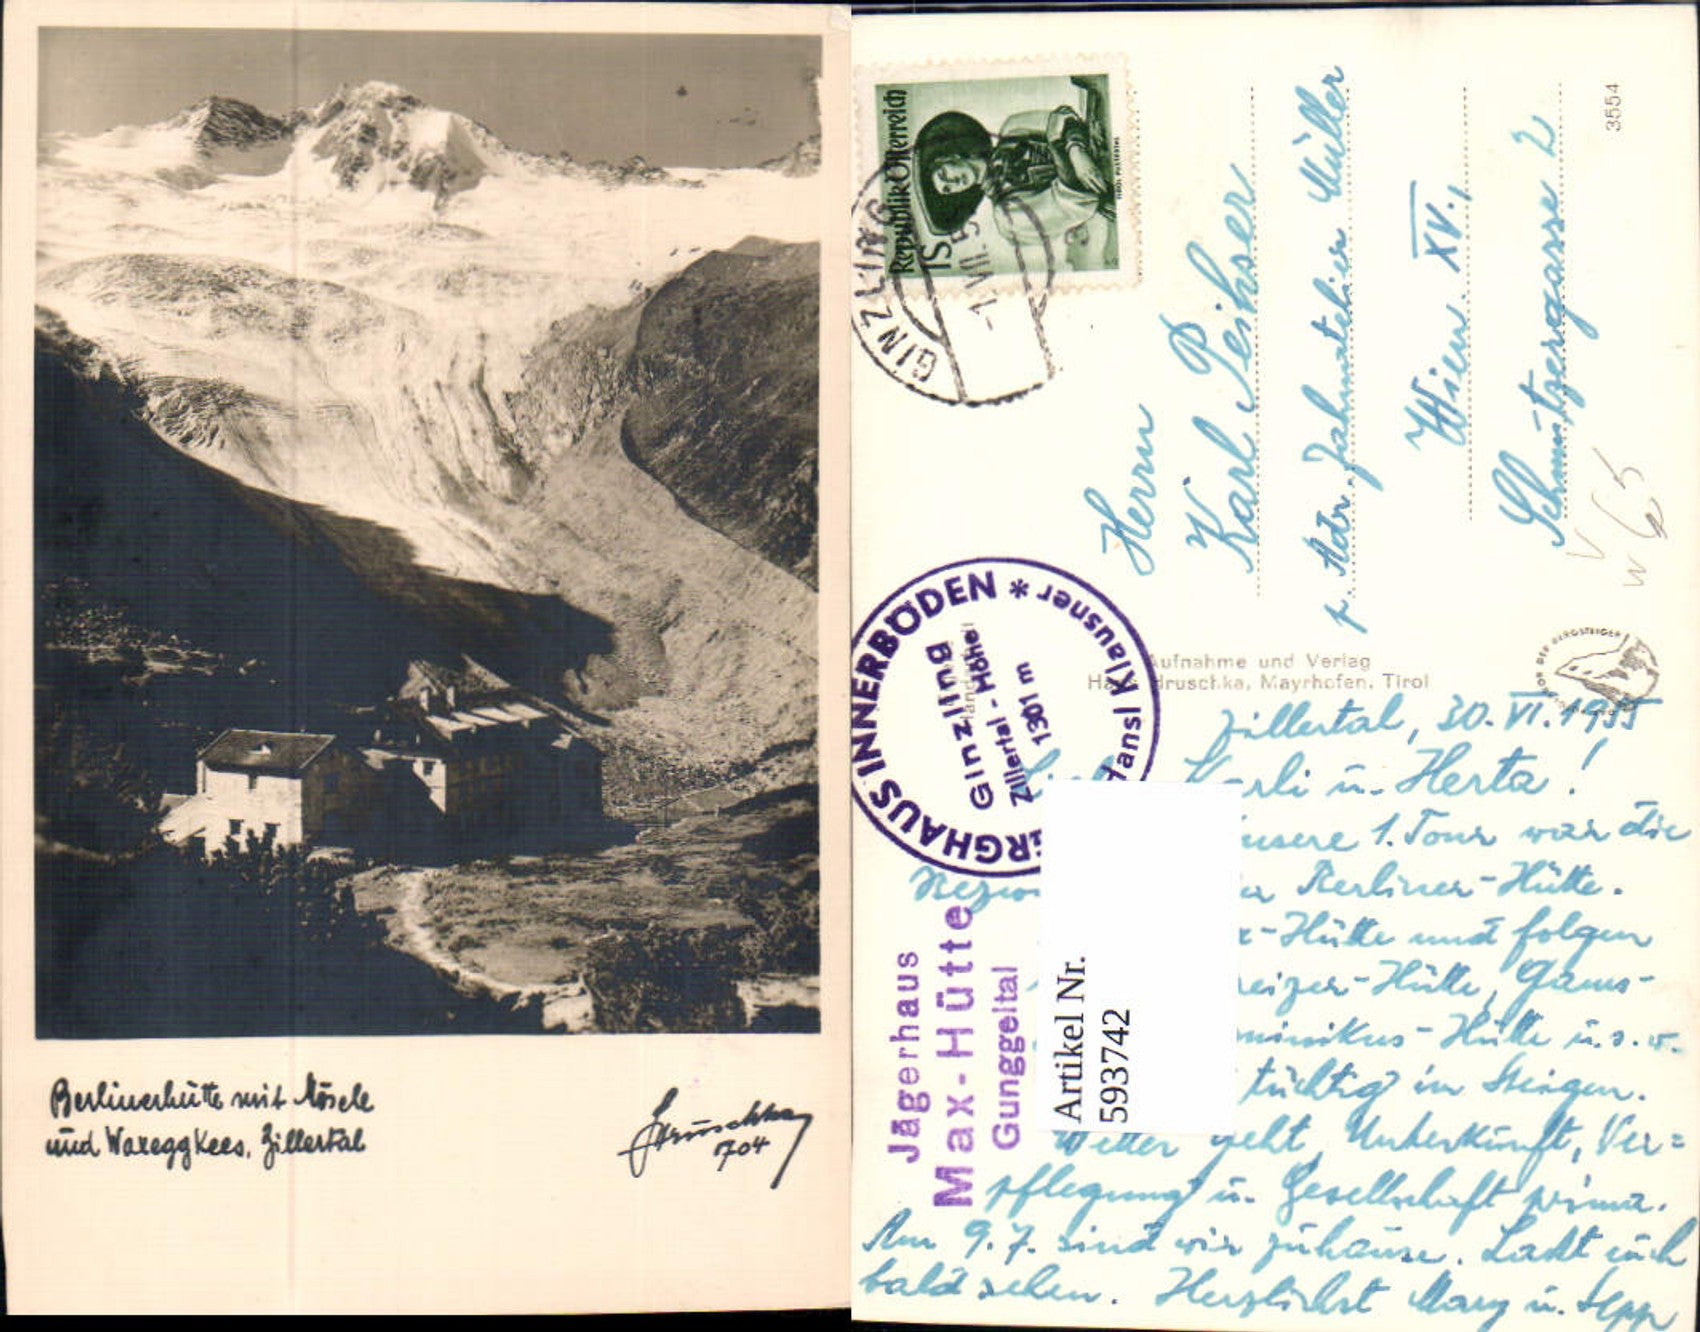 Berlinerhütte mit Mösele
und Waxeggkees, Zillertal
Hruschka
1704
Republik Österreich
1S
TIROL PUSTERTAL
GINZLING
-1.VII.5
3554
Herrn
Karl Peihser
p. Adr. Zahnatelier Müller
Wien XV.,
Schmutzergasse 2
V
W 65
Aufnahme und Verlag
Hruschka, Mayrhofen, Tirol
INNERBÖDEN * Hansl Klausner
Ginzling
Zillertal-Höhe
1301 m
Jägerhaus
Max-Hütte
Gunggeltal
Artikel Nr.
593742
Zillertal, 30.VI.1955
Karli u. Herta!
unsere 1. Tour war die
Berliner-Hütte.
-Hütte und folgen
-Hütte, Gams-
Dominikus-Hütte u.s.w.
tüchtig im Steigen.
Wetter geht, Unterkunft, Ver=
pflegung u. Gesellschaft prima.
Am 9.7. sind wir zuhause. Laßt euch
bald sehen. Herzlichst Mary u. Sepp